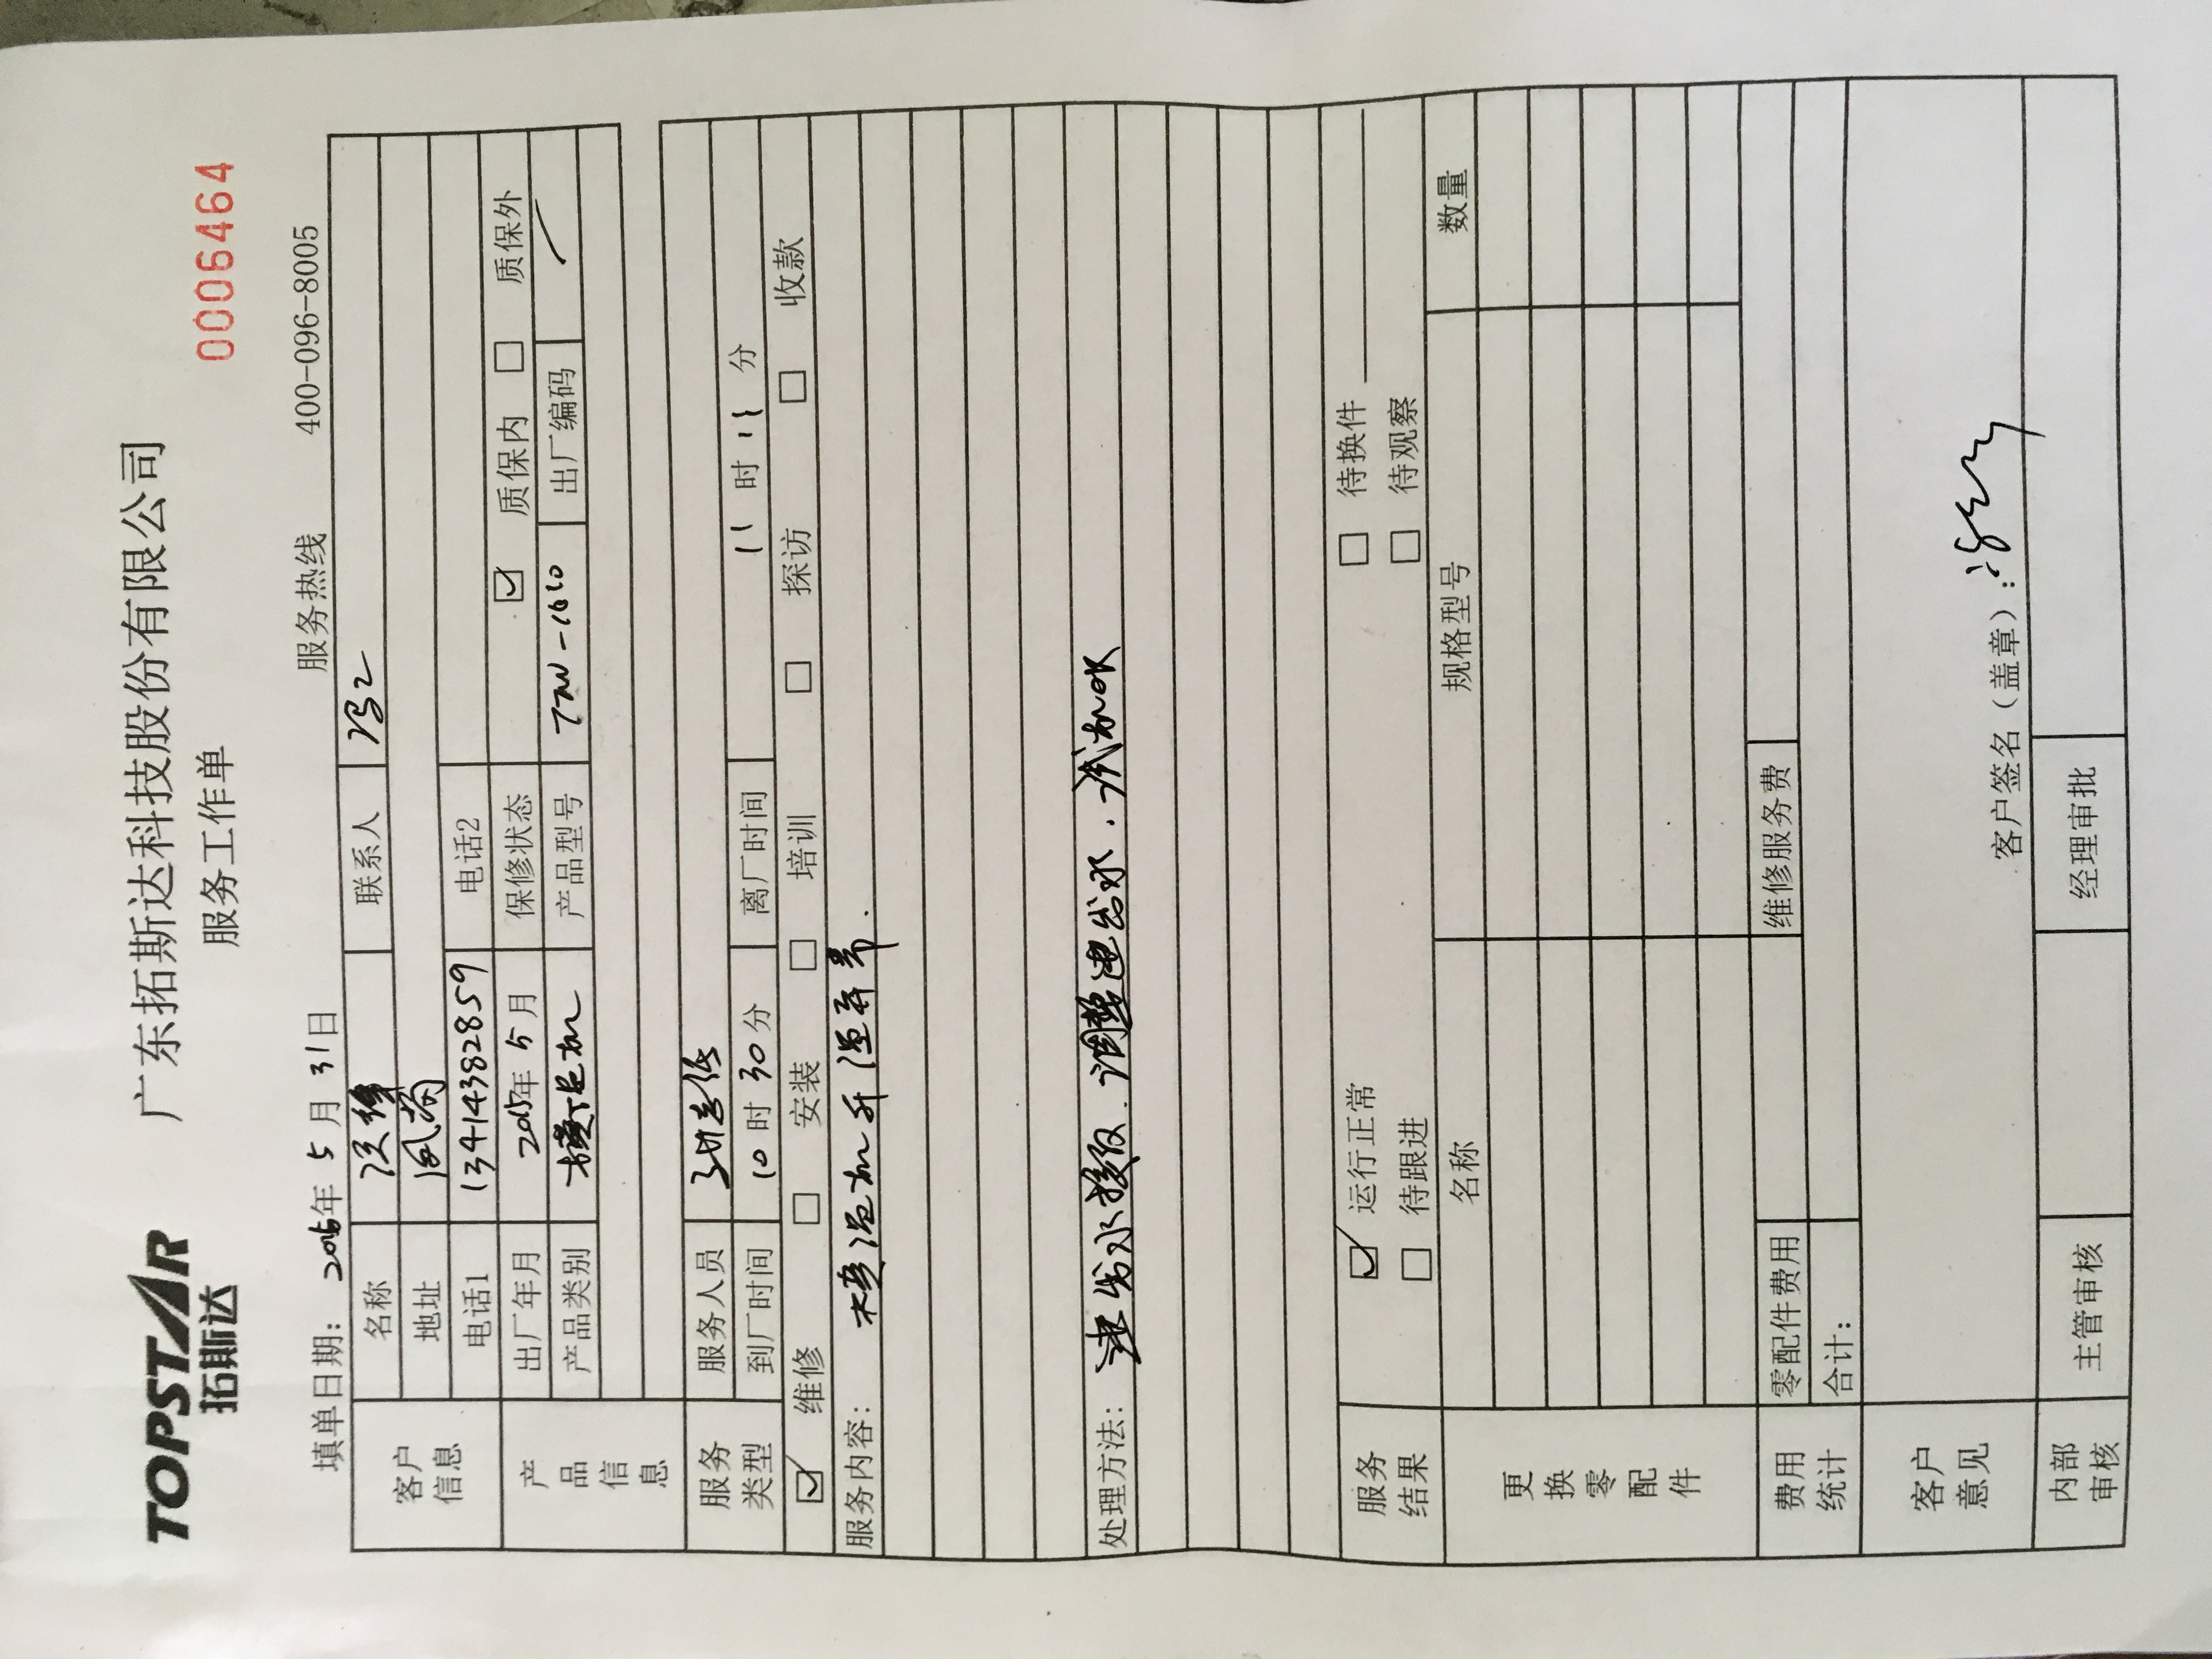 TOPSTAR
拓斯达
广东拓斯达科技股份有限公司
服务工作单
0006464
填单日期: 2016年 5 月 31日 服务热线 400-096-8005
客户信息
名称 汉纬 联系人
地址 凤岗
电话1 13414382859 电话2
产品信息
出厂年月 2015年 5月 保修状态 ☑ 质保内 □ 质保外
产品类别 模温机 产品型号 出厂编码 /
服务类型
服务人员
到厂时间 10 时 30 分 离厂时间 11 时 分
☑ 维修 □ 安装 □ 培训 □ 探访 □ 收款
服务内容: 模温机升温异常.
处理方法: 进出水接反.调整进出水.试机OK
服务结果
☑ 运行正常 □ 待换件
□ 待跟进 □ 待观察
更换零配件
名称 规格型号 数量
费用统计
零配件费用 维修服务费
合计:
客户意见
客户签名（盖章）:
内部审核
主管审核 经理审批